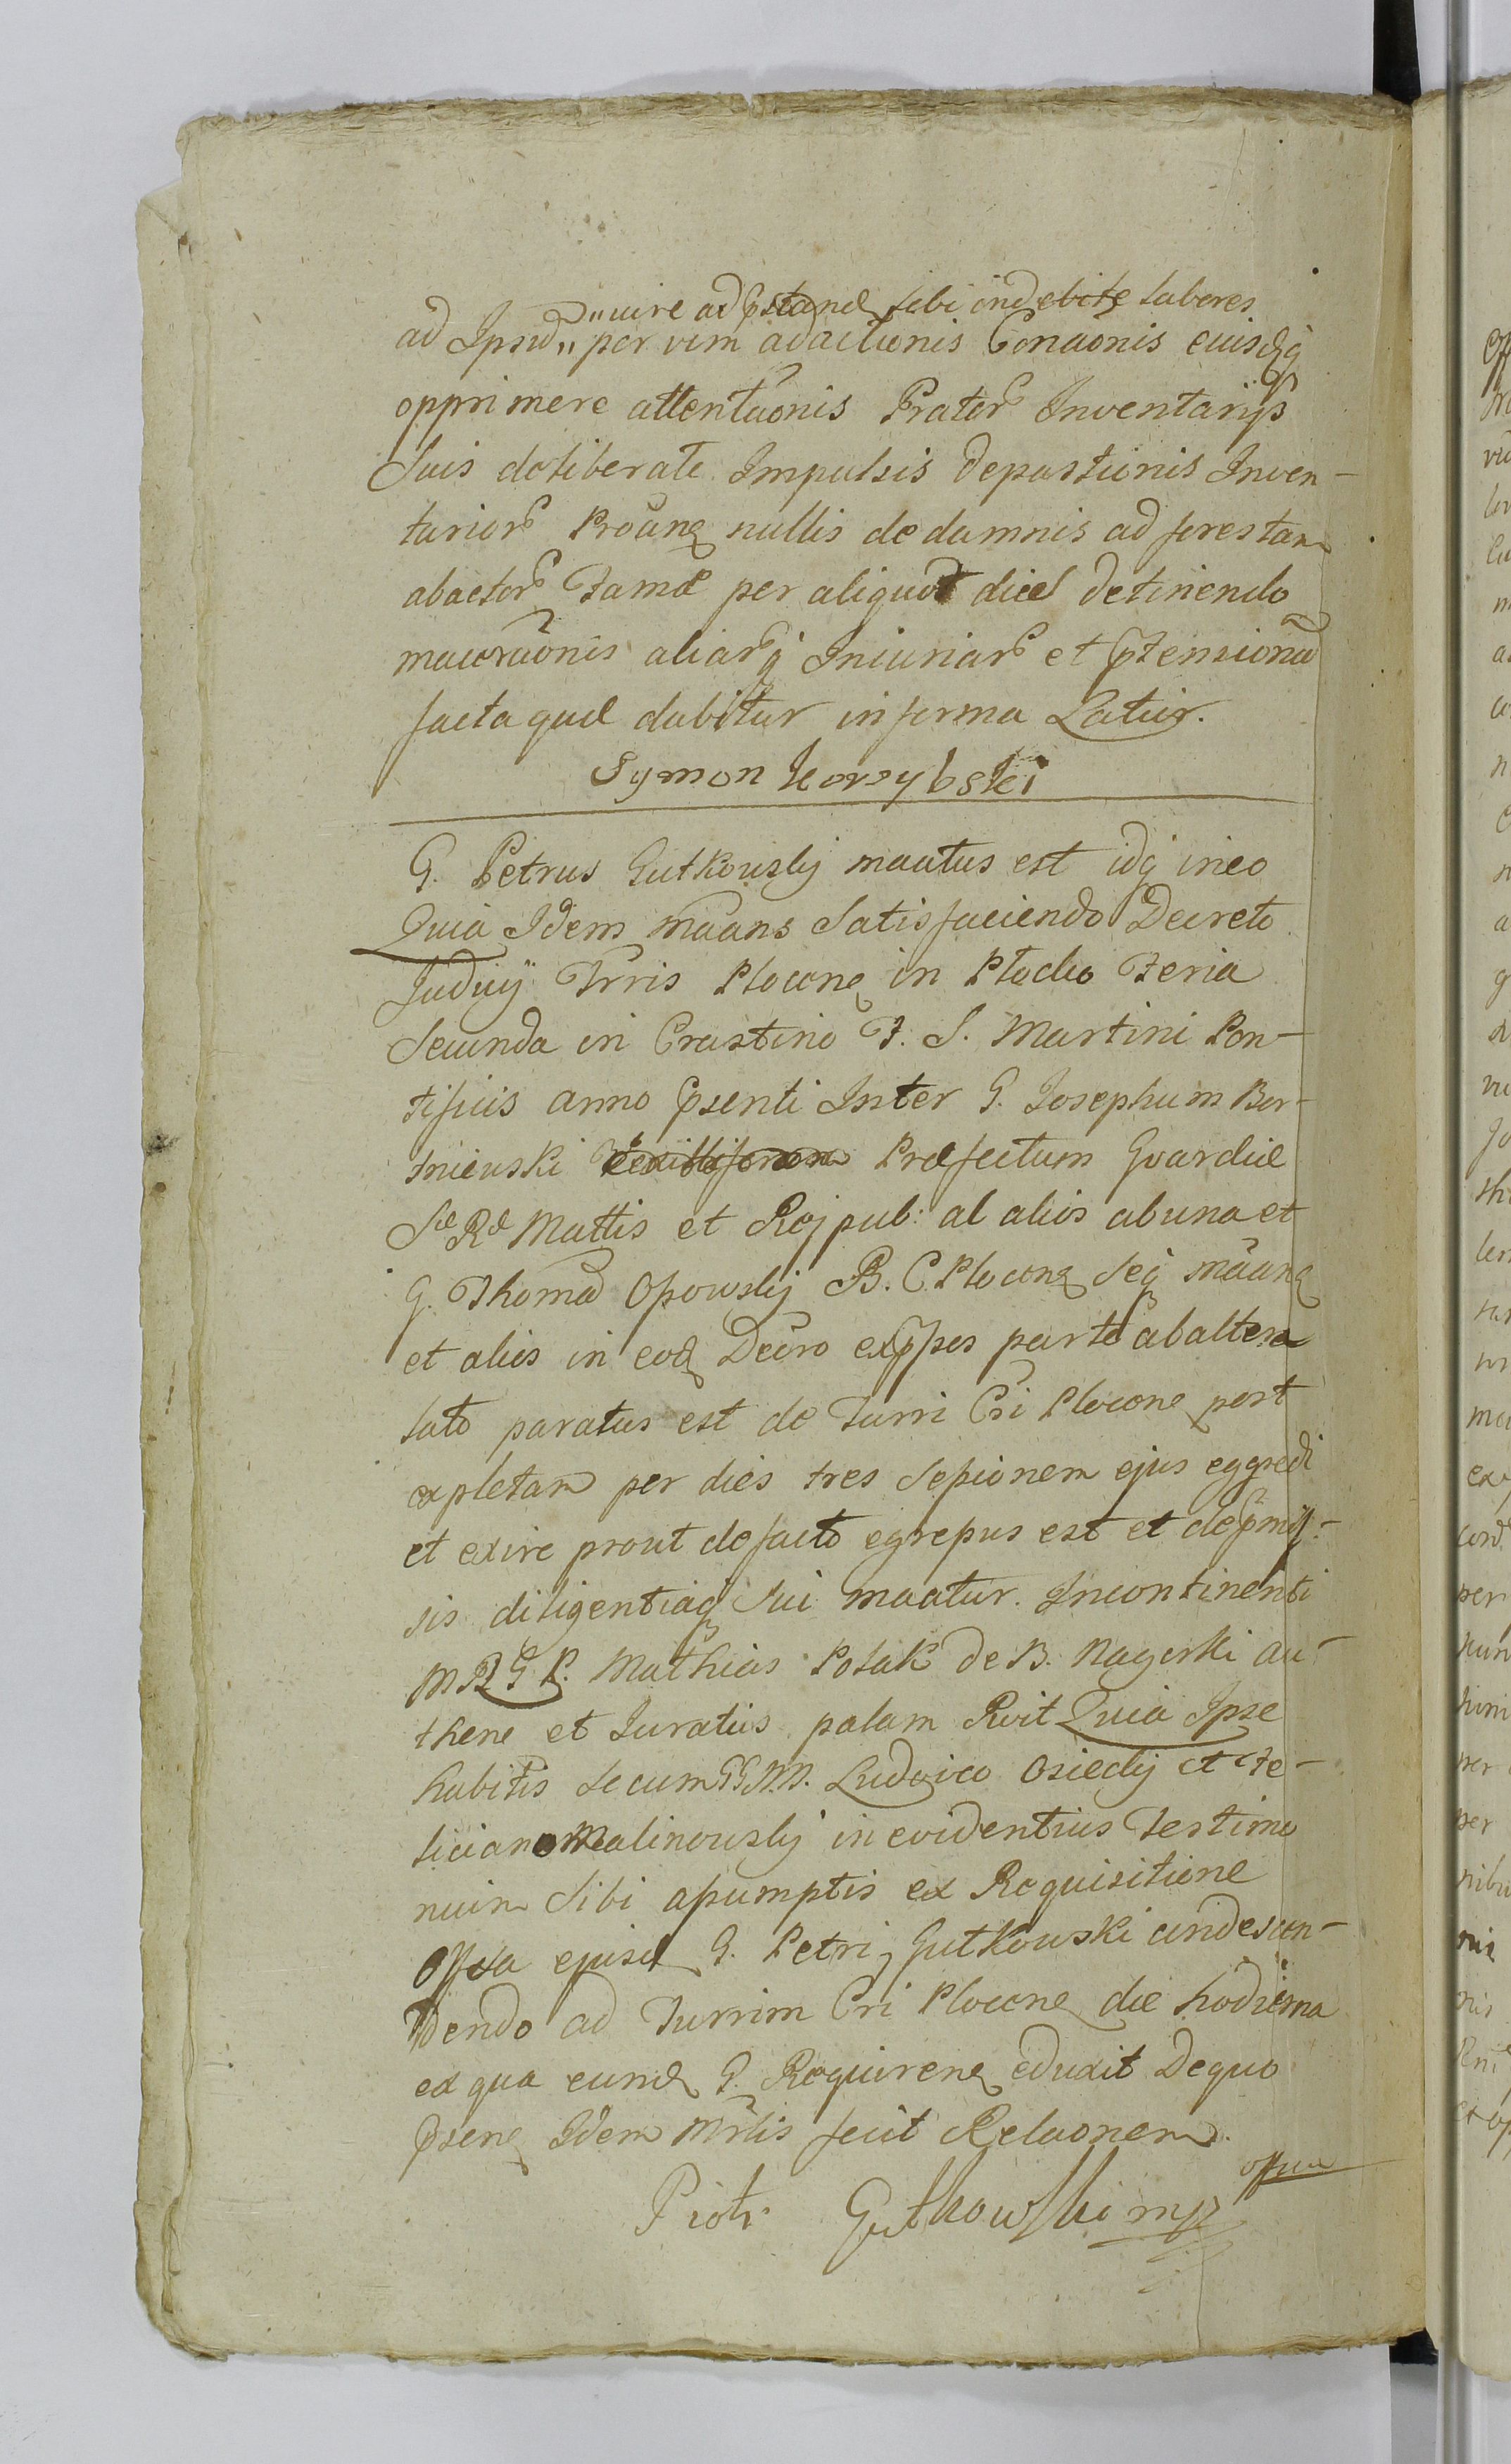 "uire ad pstand sibi indebite labores
ad Ipsud " per vim adactionis Conaonis eiusdq
opprimere attentaonis Frater Inventarys
Suis deliberate Impulsis depastionis Inven-
tarior Proang nullis de damnis ad forestam
abactor Fame per aliquot dies detinendo
maceraonis aliarq Iniuriar et ptensiona
facta que dabitur in forma Latior.
Symon Korzybski
G. Petrus Gutkowsky maatus est idq ineo
Quia Idem maans Satisfaciendo Decreto
Judicy Trris Plocen in Plocko Feria
Secunda in Crastino F. S. Martini Pon-
tificis anno psenti Inter G. Iosephum Bor-
mienski Vexilliferum Præfectum Gvardiæ
Sæ Ræ Mattis et Reipub: al alios ab una et
G. Thoma Opowsky B. C. Plocen Seq maang
et alios in eod Decro expssos parte ab altera
lato paratus est de Turri Cri Plocen post
expletam per dies tres Sessionem ejus eggredi
et exire prout de facto egressus est et de pmis-
sis diligentiaq sui maatur. Incontinenti
M R G P. Mathias Polak de B. Nagorki au-
then et Iuratus palam Rvit Quia Ipse
habitis secum GG NN. Ludovico Osiecky et Fe-
liciano Malinowsky in evidentius Testimo
nium Sibi assumptis ex Requisitione
Offosa ejusd G. Petri Gutkowski condescen-
dendo ad Turrim Cri Plocen die hodierna
ex qua eund G. Requiren eduxit De quo
psens Idem Mrlis fecit Relaonem.
Piotr Gutkowski mp